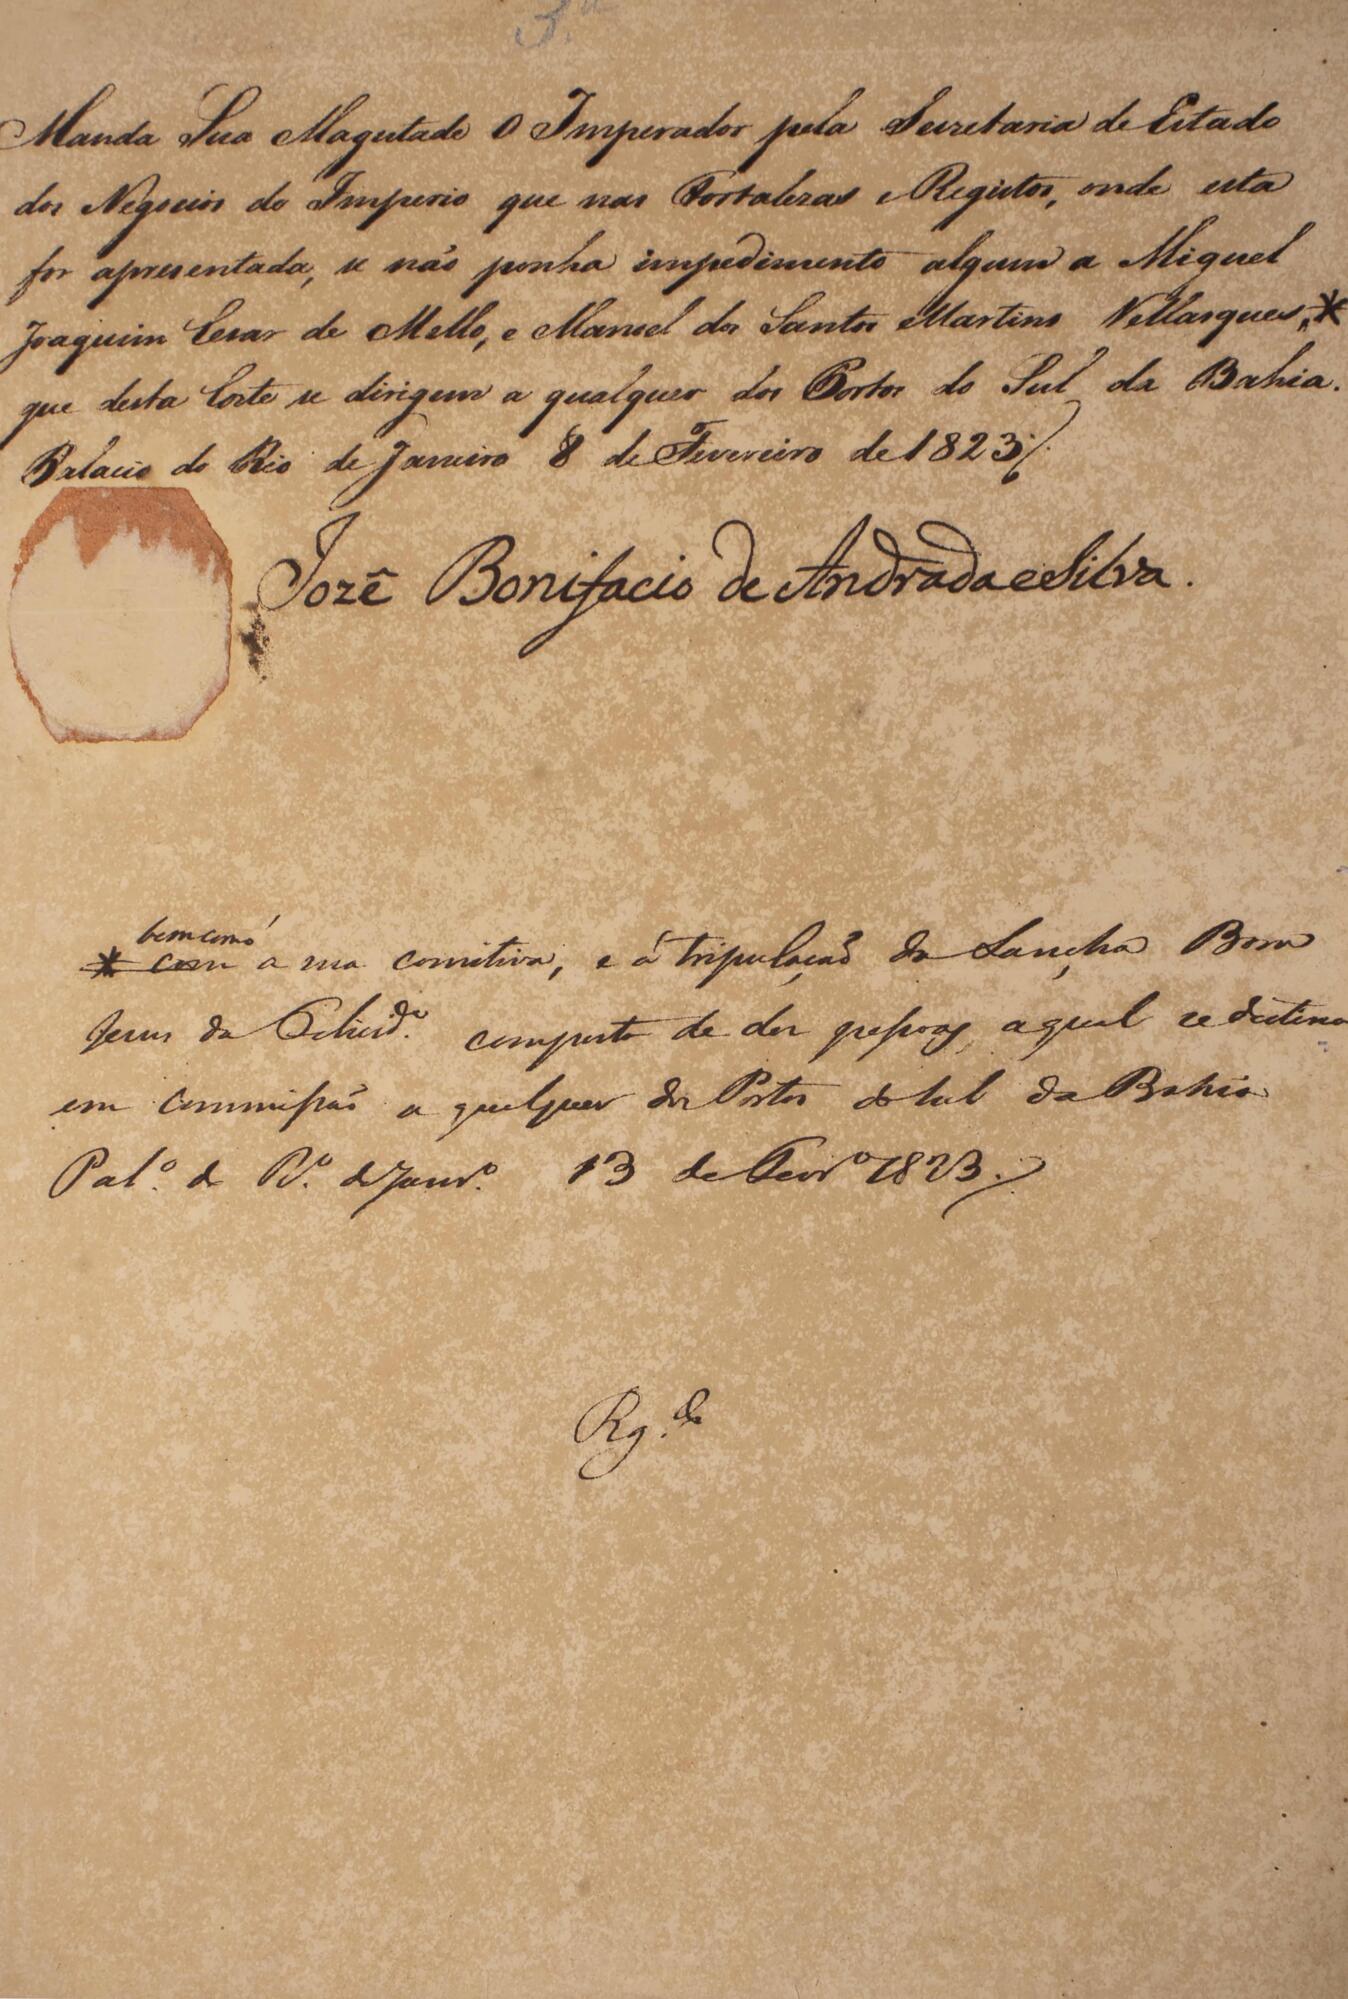 Manda Sua Magestade O Imperador pela Secretaria de Estado
dos Negocios do Imperio que nas Fortalezas e Registos, onde esta
for apresentada, se não ponha impedimento algum a Miguel
Joaquim Cesar de Mello, e Manoel dos Santos Martins Vellasques, *
que desta Corte se dirigem a qualquer dos Portos do Sul da Bahia.
Palacio do Rio de Janeiro 8 de Fevereiro de 1823
Jozê Bonifacio de Andrada e Silva.
bem como
* com a sua comitiva, e á tripulação da Lancha Bom
Jesus da Felicid.e composta de dez pessoas, a qual se destina
em commissão a qualquer dos Portos do Sul da Bahia
Pal.o do R.o de Janr.o 13 de Fevr.o 1823.
Rg.da